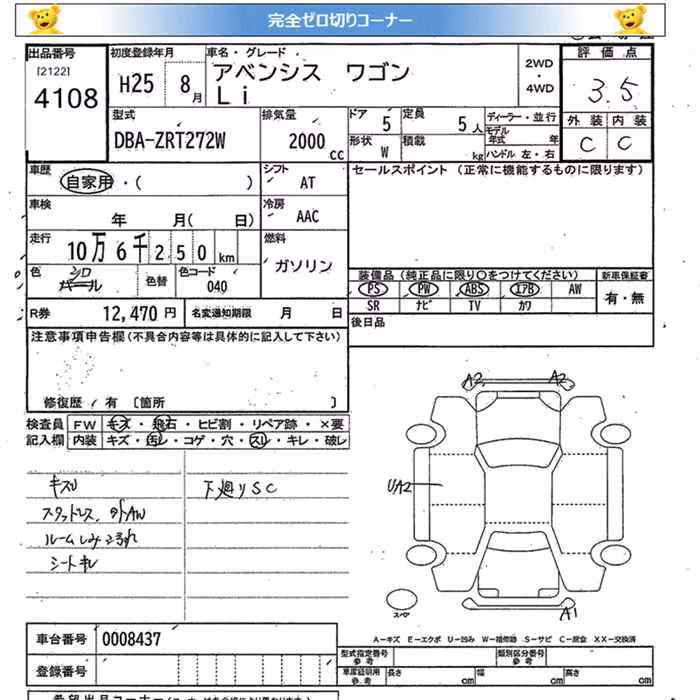 完全ゼロ切りコーナー
出品番号 [2122] 4108
初度登録年月 H25 8月
車名・グレード アベンシス ワゴン Li
2WD・4WD
評価点 3.5
外装 内装
C C
型式 DBA-ZRT272W
排気量 2000 CC
ドア 5
定員 5人
ディーラー・並行
形状 W
積載 kg
モデル年式 年
ハンドル 左・右
車歴 自家用・( )
シフト AT
セールスポイント (正常に機能するものに限ります)
車検 年 月( 日)
冷房 AAC
走行 10万6千250km
燃料 ガソリン
色 シロ パール
色替
色コード 040
装備品(純正品に限り〇をつけてください)
新車保証書
PS PW ABS エアB AW
有・無
SR ナビ TV カワ
R券 12,470円
名変通知期限 月 日
後日品
注意事項申告欄(不具合内容等は具体的に記入して下さい)
修復歴 有 〔箇所 〕
検査員記入欄
FW キズ・飛石・ヒビ割・リペア跡・×要
内装 キズ・汚レ・コゲ・穴・スレ・キレ・破レ
キズU
下廻りSC
スタッドレス、外AW
ルームしみ汚れ
シートキレ
A2 A2
UA2
スペア
A1
A-キズ E-エクボ U-凹み W-補修跡 S-サビ C-腐食 XX-交換済
車台番号 0008437
型式指定番号 参考
類別区分番号 参考
登録番号
車庫証明用 参考 長さ cm 幅 cm 高さ cm